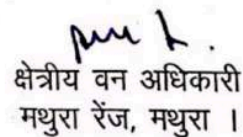 क्षेत्रीय वन अधिकारी
मथुरा रेंज, मथुरा ।